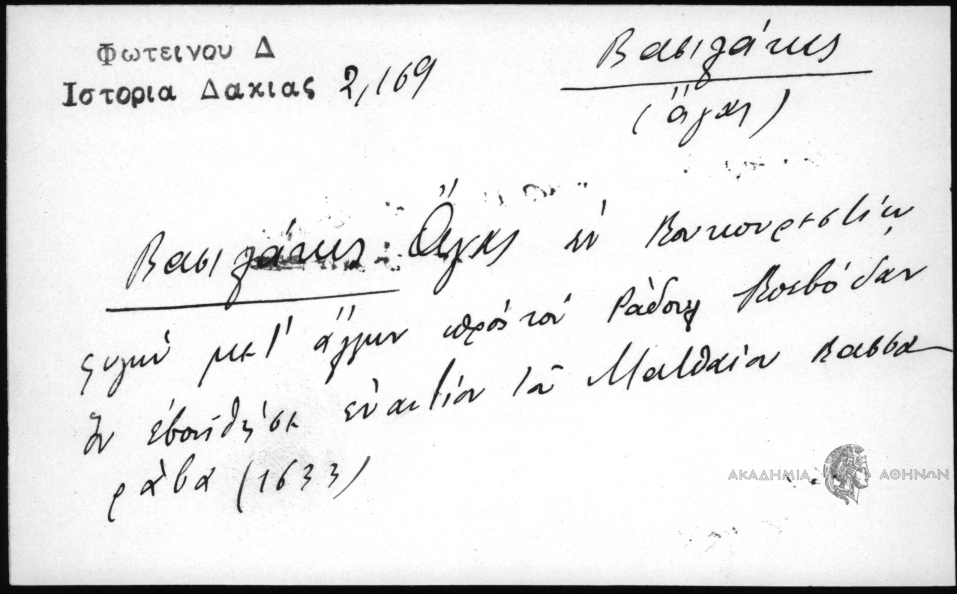 Φωτεινου Δ
Ιστορια Δακιας 2,169
Βασιλάκης
(ἄγας)
Βασιλάκης Ἄγας ἐν Βουκουρεστίῳ
μετ' ἄλλων πρὸς τὸν Ράδουλ Βοεβόδαν
ὃν ἐβοήθησε ἐναντίον τοῦ Ματθαίου Βασσα
ράβα (1633)
ΑΚΑΔΗΜΙΑ ΑΘΗΝΩΝ